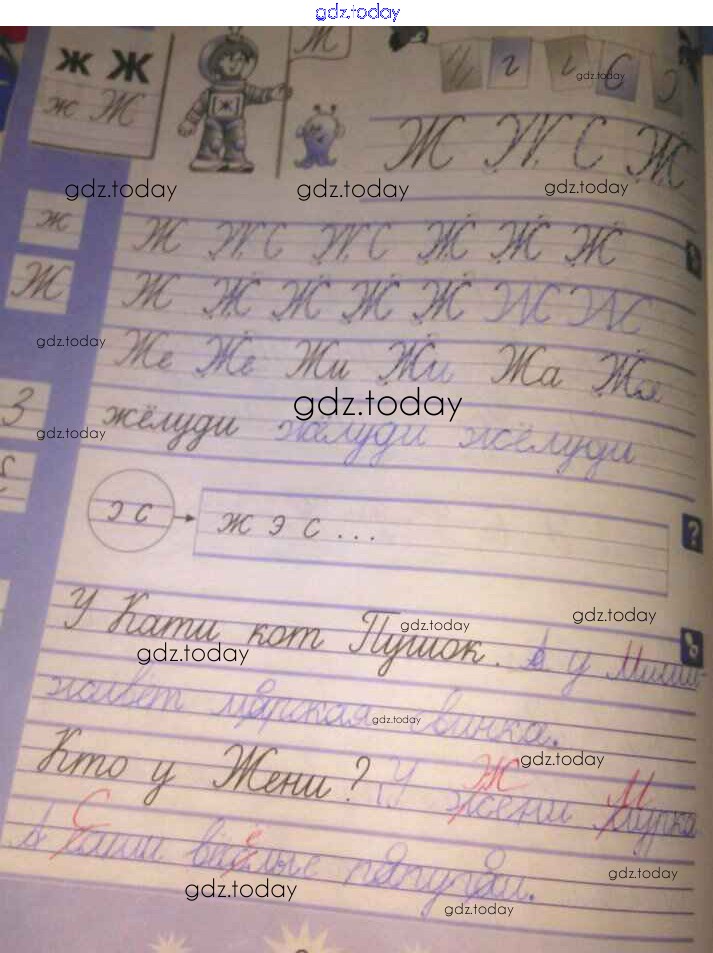 gdz.today
ж Ж
ж Ж
Ж
Ж
г г С
gdz.today
Ж С Ж
gdz.today gdz.today gdz.today
ж
Ж С С Ж Ж Ж
Ж
Ж Ж Ж Ж Ж
gdz.today
Же Же Жи Жи Жа Жа
gdz.today
З
gdz.today
жёлуди жёлуди жёлуди
э с
ж э с ...
?
У Кати кот Пушок. А у Миши
gdz.today gdz.today gdz.today
живет морская свинка.
gdz.today
Кто у Жени? У Жени Мурка
gdz.today
А Саши весёлые попугаи.
gdz.today gdz.today
gdz.today